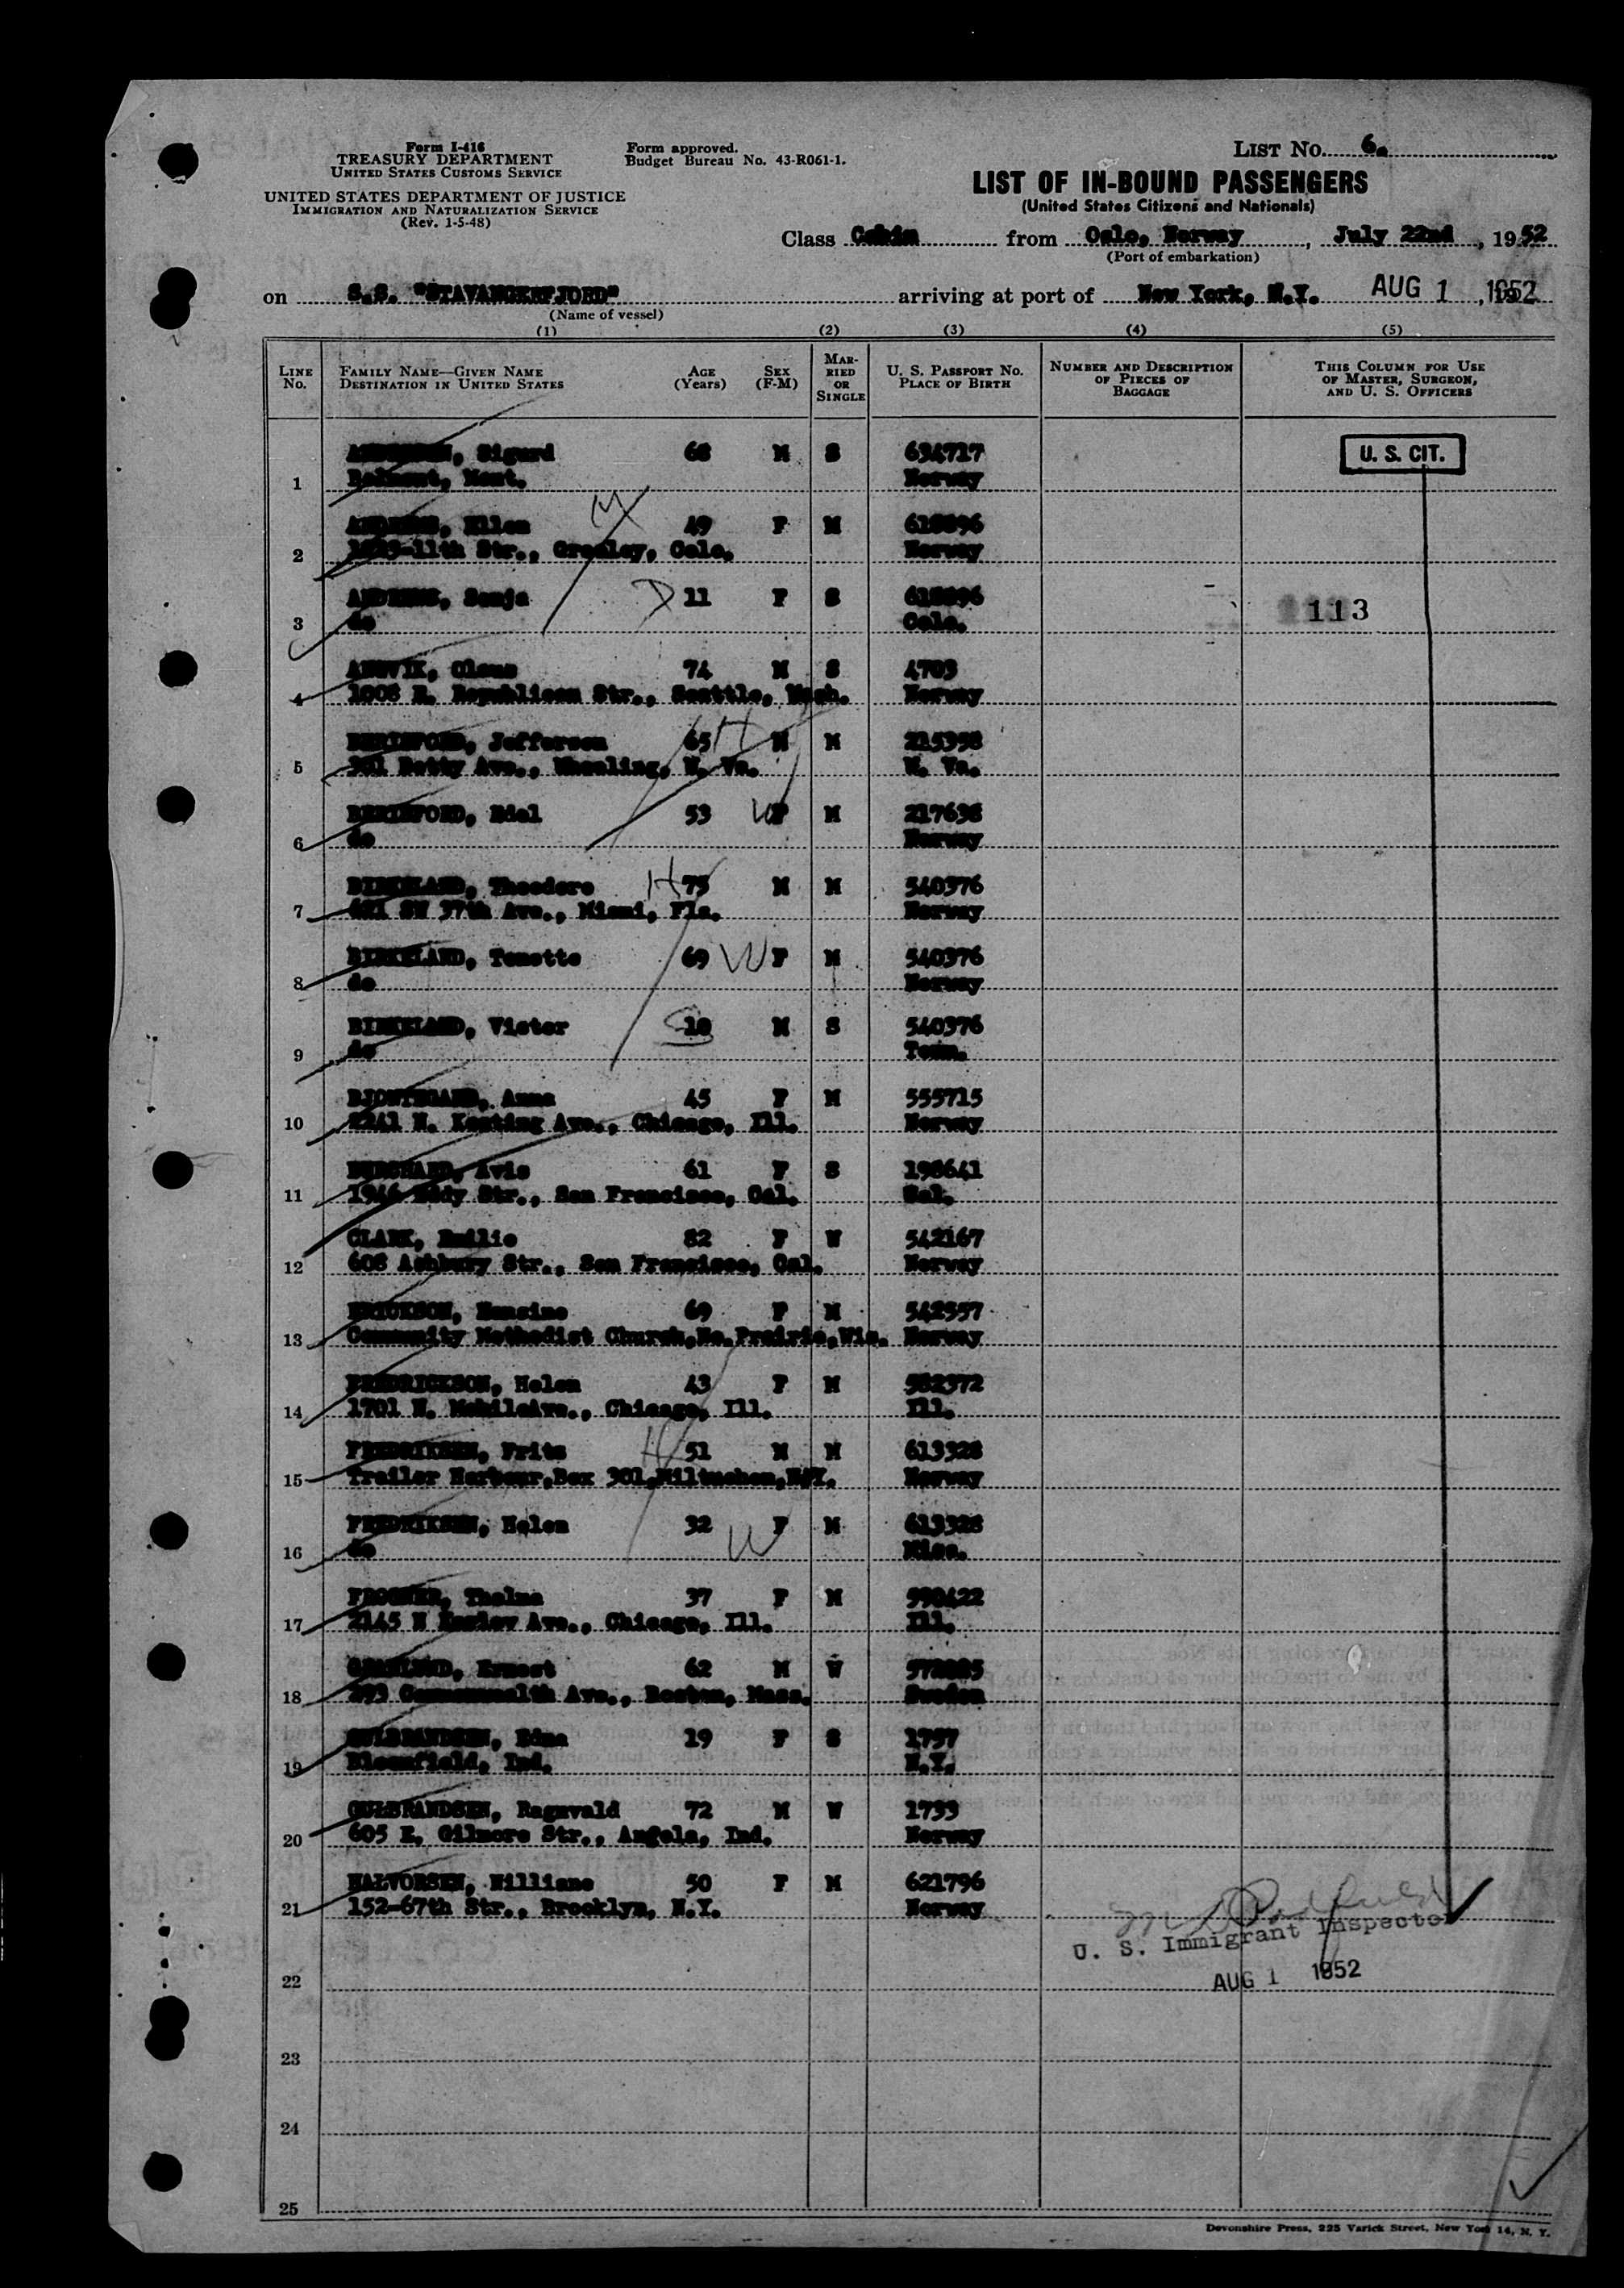 Form I-416
TREASURY DEPARTMENT
UNITED STATES CUSTOMS SERVICE
UNITED STATES DEPARTMENT OF JUSTICE
IMMIGRATION AND NATURALIZATION SERVICE
(Rev. 1-5-48)
Form approved.
Budget Bureau No. 43-R061-1.
LIST No. 6.
LIST OF IN-BOUND PASSENGERS
(United States Citizens and Nationals)
Class Cabin from Oslo, Norway, July 22nd, 1952
(Port of embarkation)
on S.S. "STAVANGERFJORD" arriving at port of New York, N.Y. AUG 1 1952
(Name of vessel)
(1) (2) (3) (4) (5)
LINE No. FAMILY NAME—GIVEN NAME DESTINATION IN UNITED STATES AGE (Years) SEX (F-M) MARRIED OR SINGLE U. S. PASSPORT No. PLACE OF BIRTH NUMBER AND DESCRIPTION OF PIECES OF BAGGAGE THIS COLUMN FOR USE OF MASTER, SURGEON, AND U. S. OFFICERS
Sigurd 68 M S 634717 U. S. CIT.
1 Belmont, Mont. Norway
Ellen 49 F M
2 11th Str., Greeley, Colo. Norway
Sonja D 11 F S
3 do Colo. 113
74 M S 4703
4 1008 E. Republican Str., Seattle, Wash. Norway
BERISFORD, Jefferson 65 H M M 215398
5 Betty Ave., Wheeling, W. Va. W. Va.
BERISFORD, 53 W F M 217638
6 do Norway
BIRKELAND, Theodore H 75 M M 540376
7 SW 37th Ave., Miami, Fla. Norway
BIRKELAND, Tonette 69 W F M 540376
8 do Norway
BIRKELAND, Victor S 10 M S 540376
9 do Tenn.
Anna 45 F M 555715
10 2241 N. Keating Ave., Chicago, Ill. Norway
Avis 61 F S 198641
11 Eddy Str., San Francisco, Cal. Cal.
CLARK, Emilie 82 F W 542167
12 608 Ashbury Str., San Francisco, Cal. Norway
ERICKSON, Hansine 69 F M 542557
13 Community Methodist Church, No. Prairie, Wis. Norway
FREDRICKSON, Helen 43 F M 582372
14 1701 N. Mobile Ave., Chicago, Ill. Ill.
FREDRIKSEN, Frits H 51 M M 613328
15 Trailer Harbour, Box 301, Norway
FREDRIKSEN, Helen 32 W F M 613328
16 do
Thelma 37 F M
17 2145 N Ave., Chicago, Ill. Ill.
Ernest 62 M W
18 Commonwealth Ave., Boston, Mass. Sweden
GULBRANDSEN, Edna 19 F S 1797
19 Bloomfield, Ind. N.Y.
GULBRANDSEN, Ragnvald 72 M W 1799
20 605 E. Gilmore Str., Angola, Ind. Norway
HALVORSEN, Williane 50 F M 621796
21 152-67th Str., Brooklyn, N.Y. Norway
U. S. Immigrant Inspector
22 AUG 1 1952
23
24
25
Devonshire Press, 225 Varick Street, New York 14, N. Y.